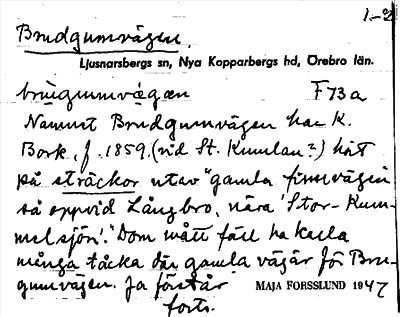 1-2
Brudgumvägen.
Ljusnarsbergs sn, Nya Kopparbergs hd, Örebro län.
brùɡummväɡæn F 73 a
Namnet Brudgumvägen har K.
Bork, f. 1859. (vid St. Kumlan?) hört
på sträckor utav "gamla finnvägen
så oppvid Långbro, nära 'Stor-Kum-
melsjön'. "Dom mått fäll ha kalla
många tåcka där gamla vägar för Bru-
gumvägen. Ja förstår
forts. MAJA FORSSLUND 1947